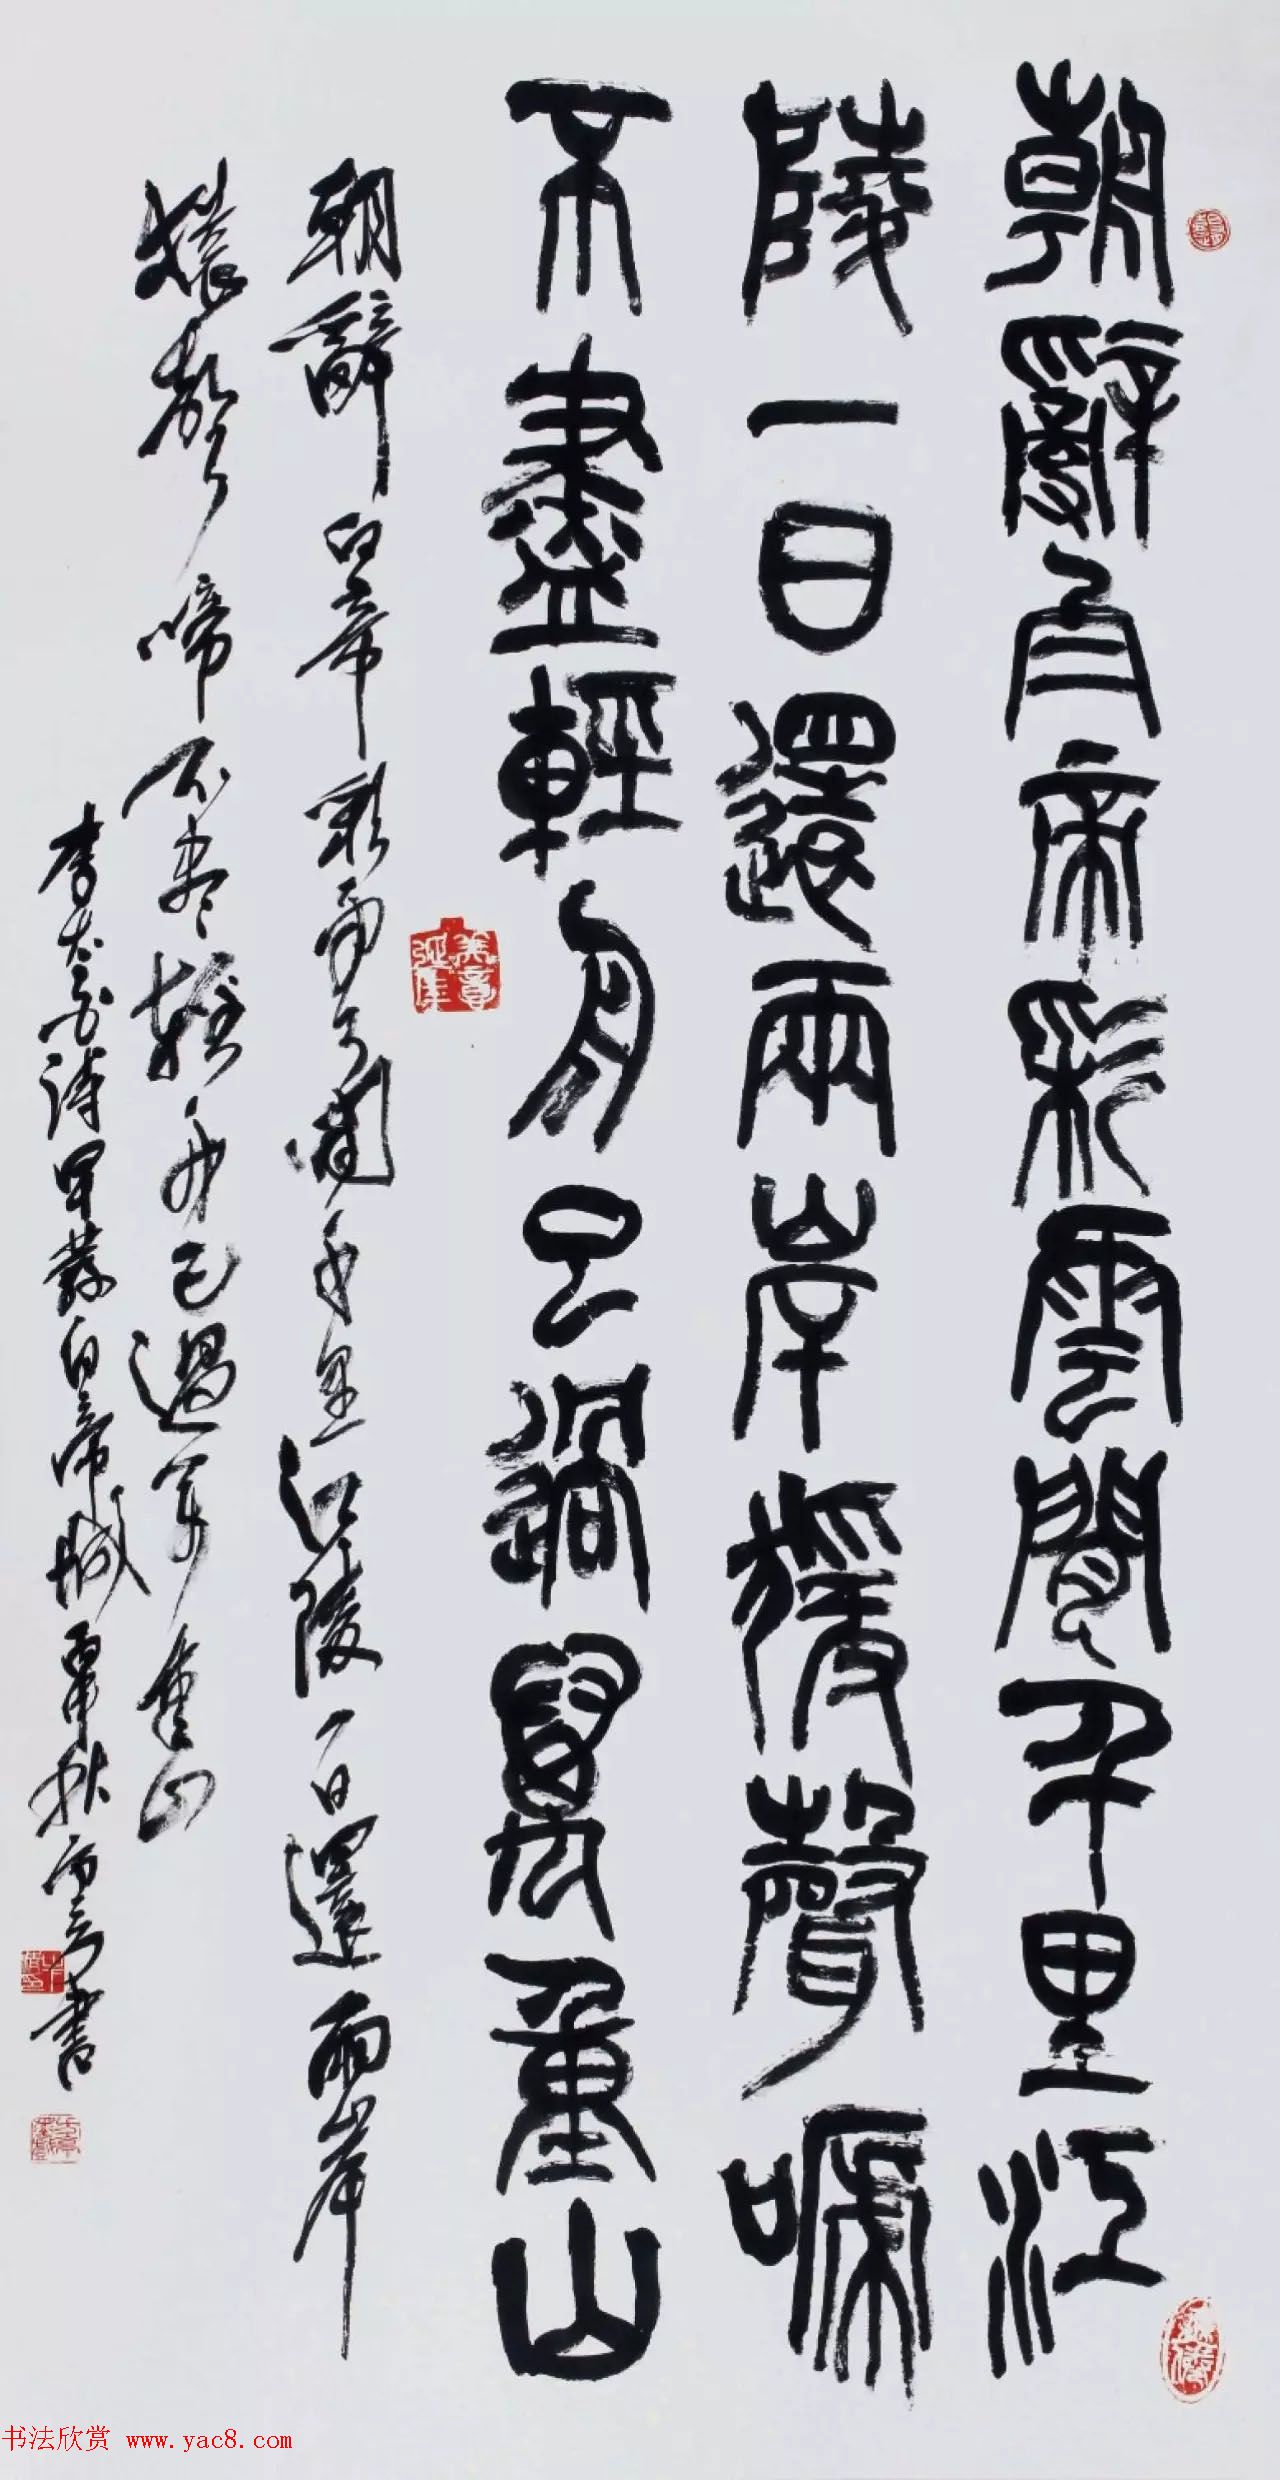 朝辭白帝彩雲間千里江
陵一日還兩岸猨聲嗁
不盡輕舟已過萬重山
朝辭白帝彩雲間千里江陵一日還兩岸
猿聲啼不盡輕舟已過萬重山
李太白詩早發白帝城丙申秋雨亭書
书法欣赏 www.yac8.com